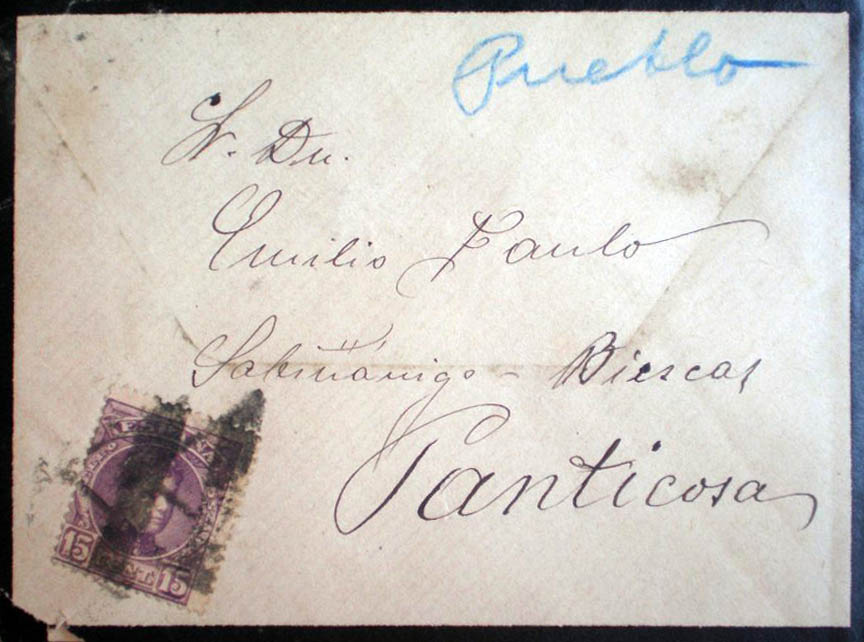 Pueblo
Sr. Dn.
Emilio Laulo
Sabiñánigo - Biescas
Panticosa
15 15